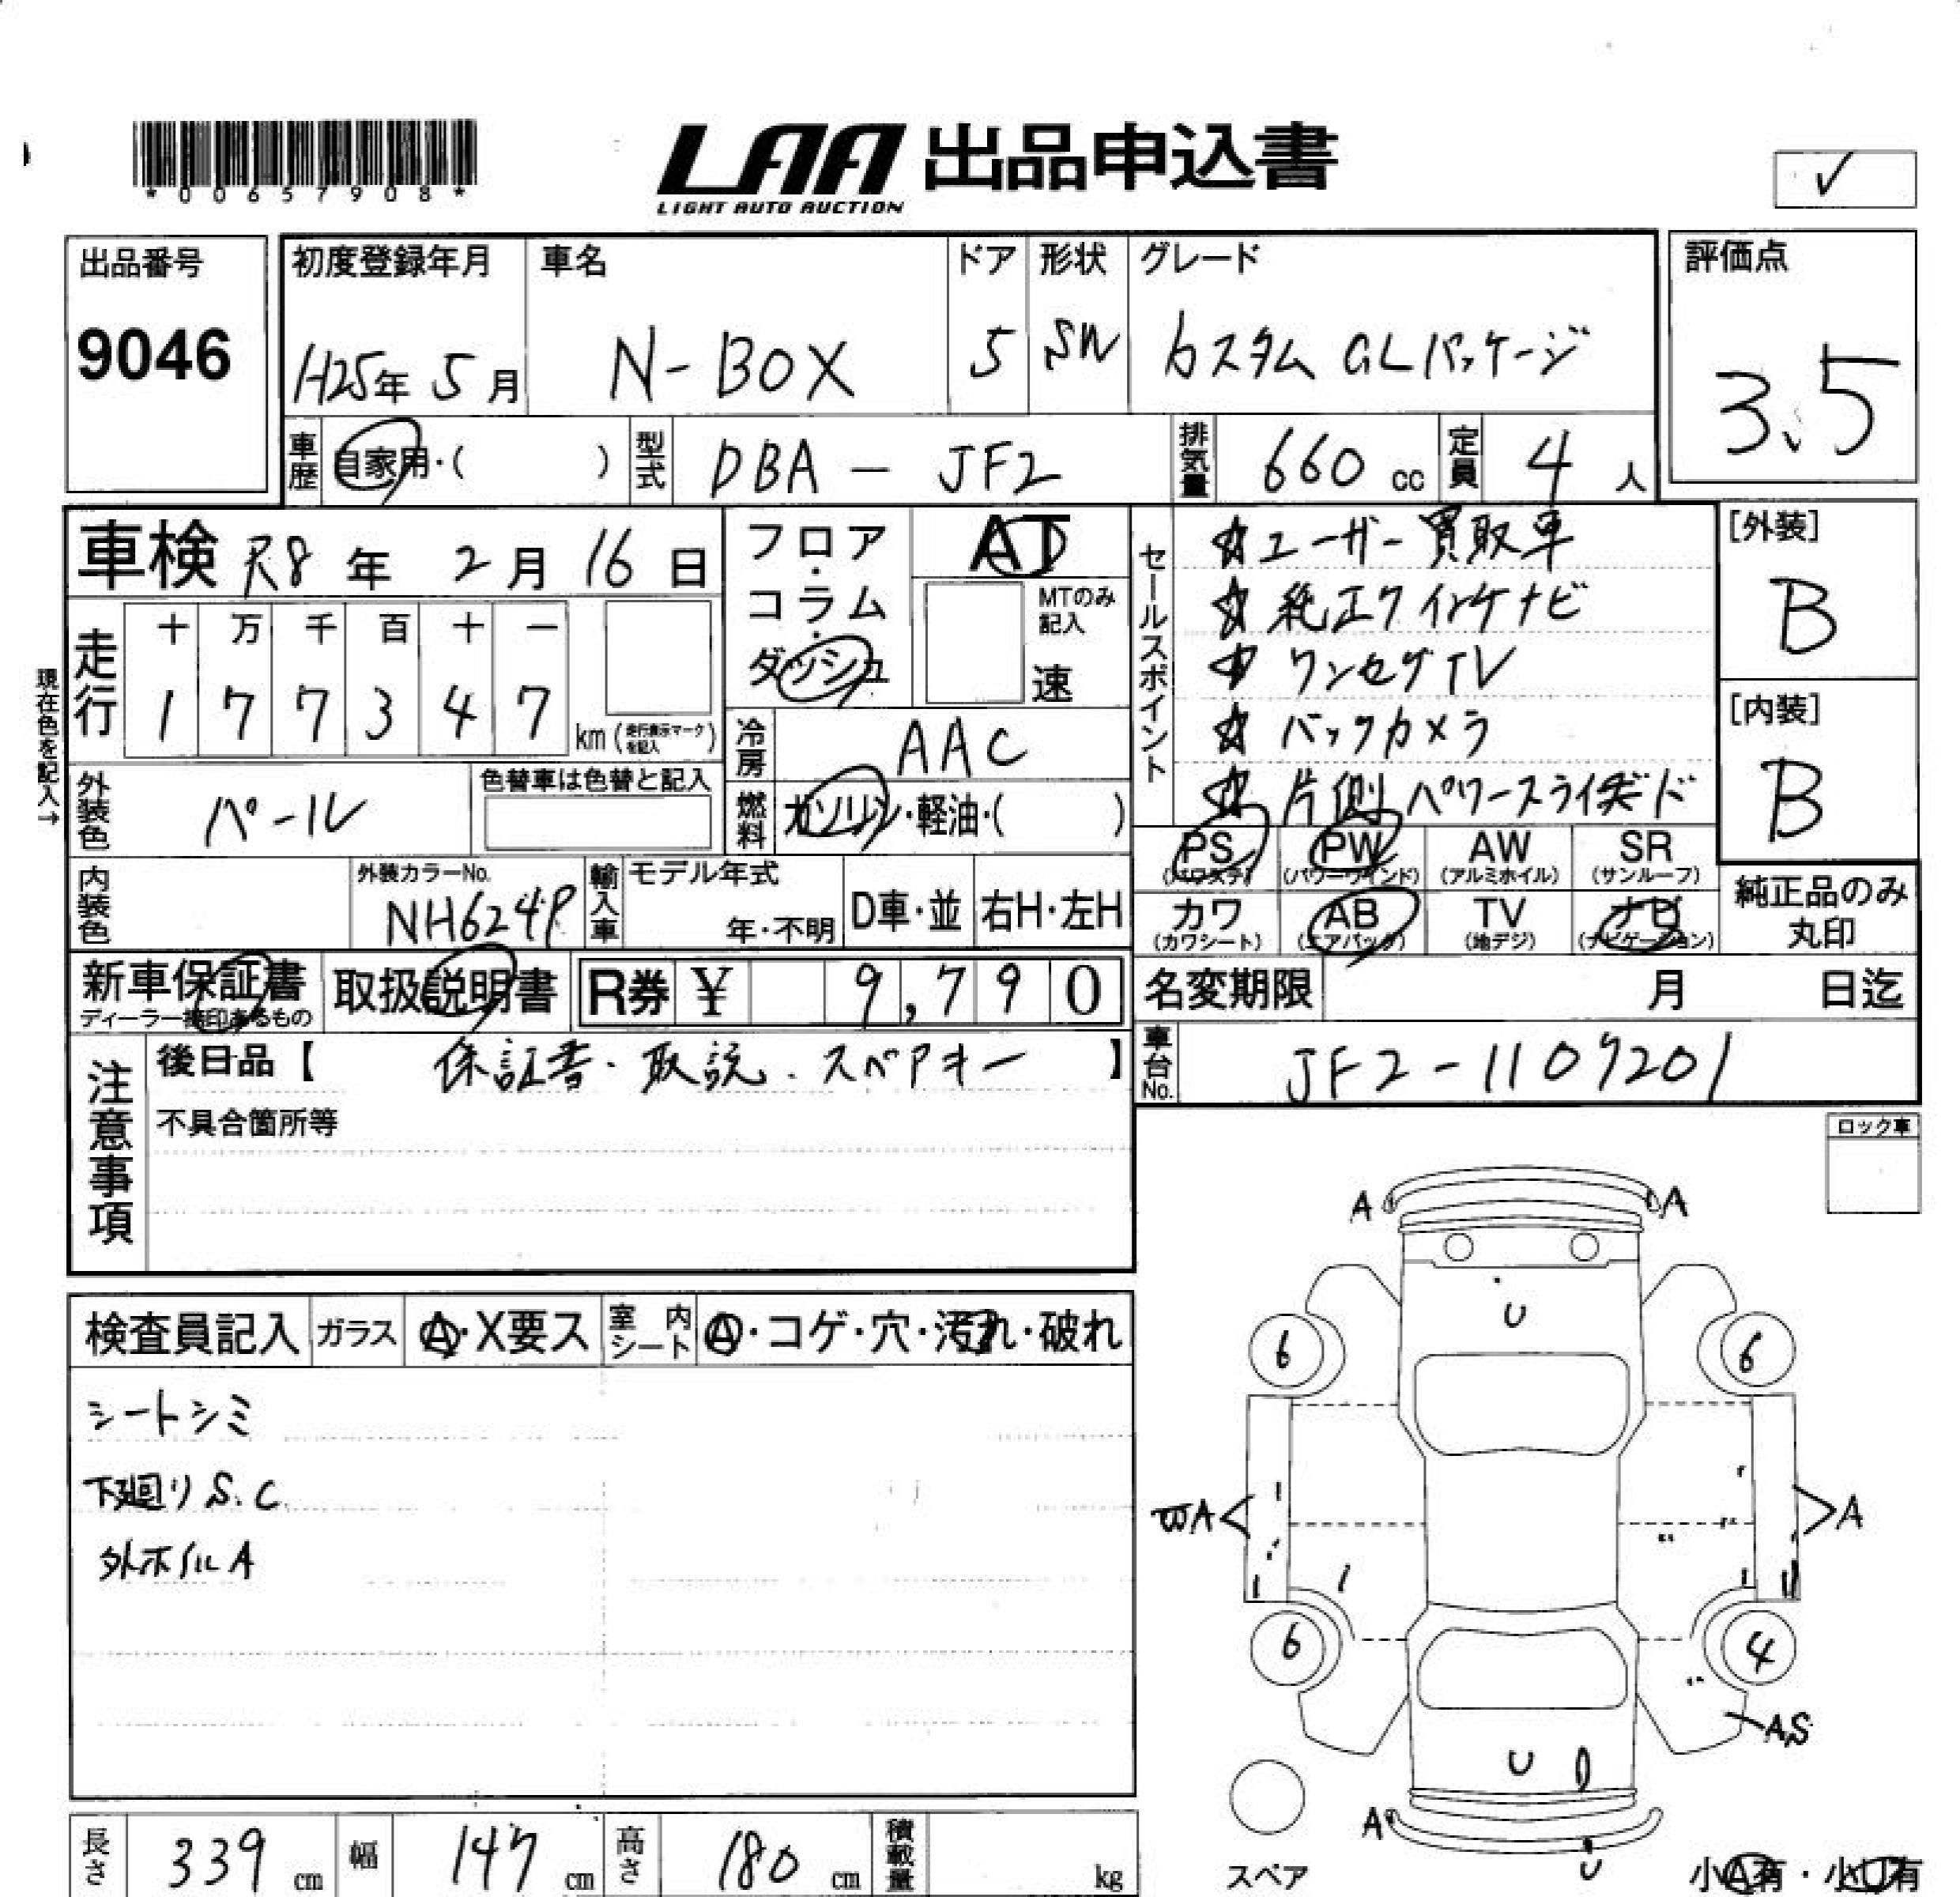 *00657908*
LAA 出品申込書
LIGHT AUTO AUCTION
✓
出品番号
9046
初度登録年月
H25年 5月
車名
N-BOX
ドア
5
形状
SW
グレード
カスタム GLパッケージ
評価点
3.5
車歴
自家用・( )
型式
DBA - JF2
排気量
660 cc
定員
4 人
車検 R8年 2月 16日
フロア・コラム・ダッシュ
AT
MTのみ記入
速
セールスポイント
☆ユーザー買取車
☆純正クインケナビ
☆ワンセグTV
☆バックカメラ
☆片側パワースライドド
[外装]
B
[内装]
B
現在色を記入→
走行
十 万 千 百 十 一
1 7 7 3 4 7 km (走行表示マークを記入)
冷房
AAC
外装色
パール
色替車は色替と記入
燃料
ガソリン・軽油・( )
PS
(パワステ)
PW
(パワーウインド)
AW
(アルミホイル)
SR
(サンルーフ)
内装色
外装カラーNo.
NH624P
輸入車
モデル年式
年・不明
D車・並
右H・左H
カワ
(カワシート)
AB
(エアバック)
TV
(地デジ)
ナビ
(ナビゲーション)
純正品のみ
丸印
新車保証書
ディーラー捺印あるもの
取扱説明書
R券 ¥ 9,790
名変期限 月 日迄
注意事項
後日品【 保証書・取説・スペアキー 】
不具合箇所等
車台No.
JF2-1109201
ロック車
検査員記入
ガラス
A・X要ス
室内シート
A・コゲ・穴・汚れ・破れ
シートシミ
下廻りS.C
外ホイルA
A A
U
6 6
WA A
6 4
AS
U
A
U
スペア
小A有・小U有
長さ
339 cm
幅
147 cm
高さ
180 cm
積載量
kg